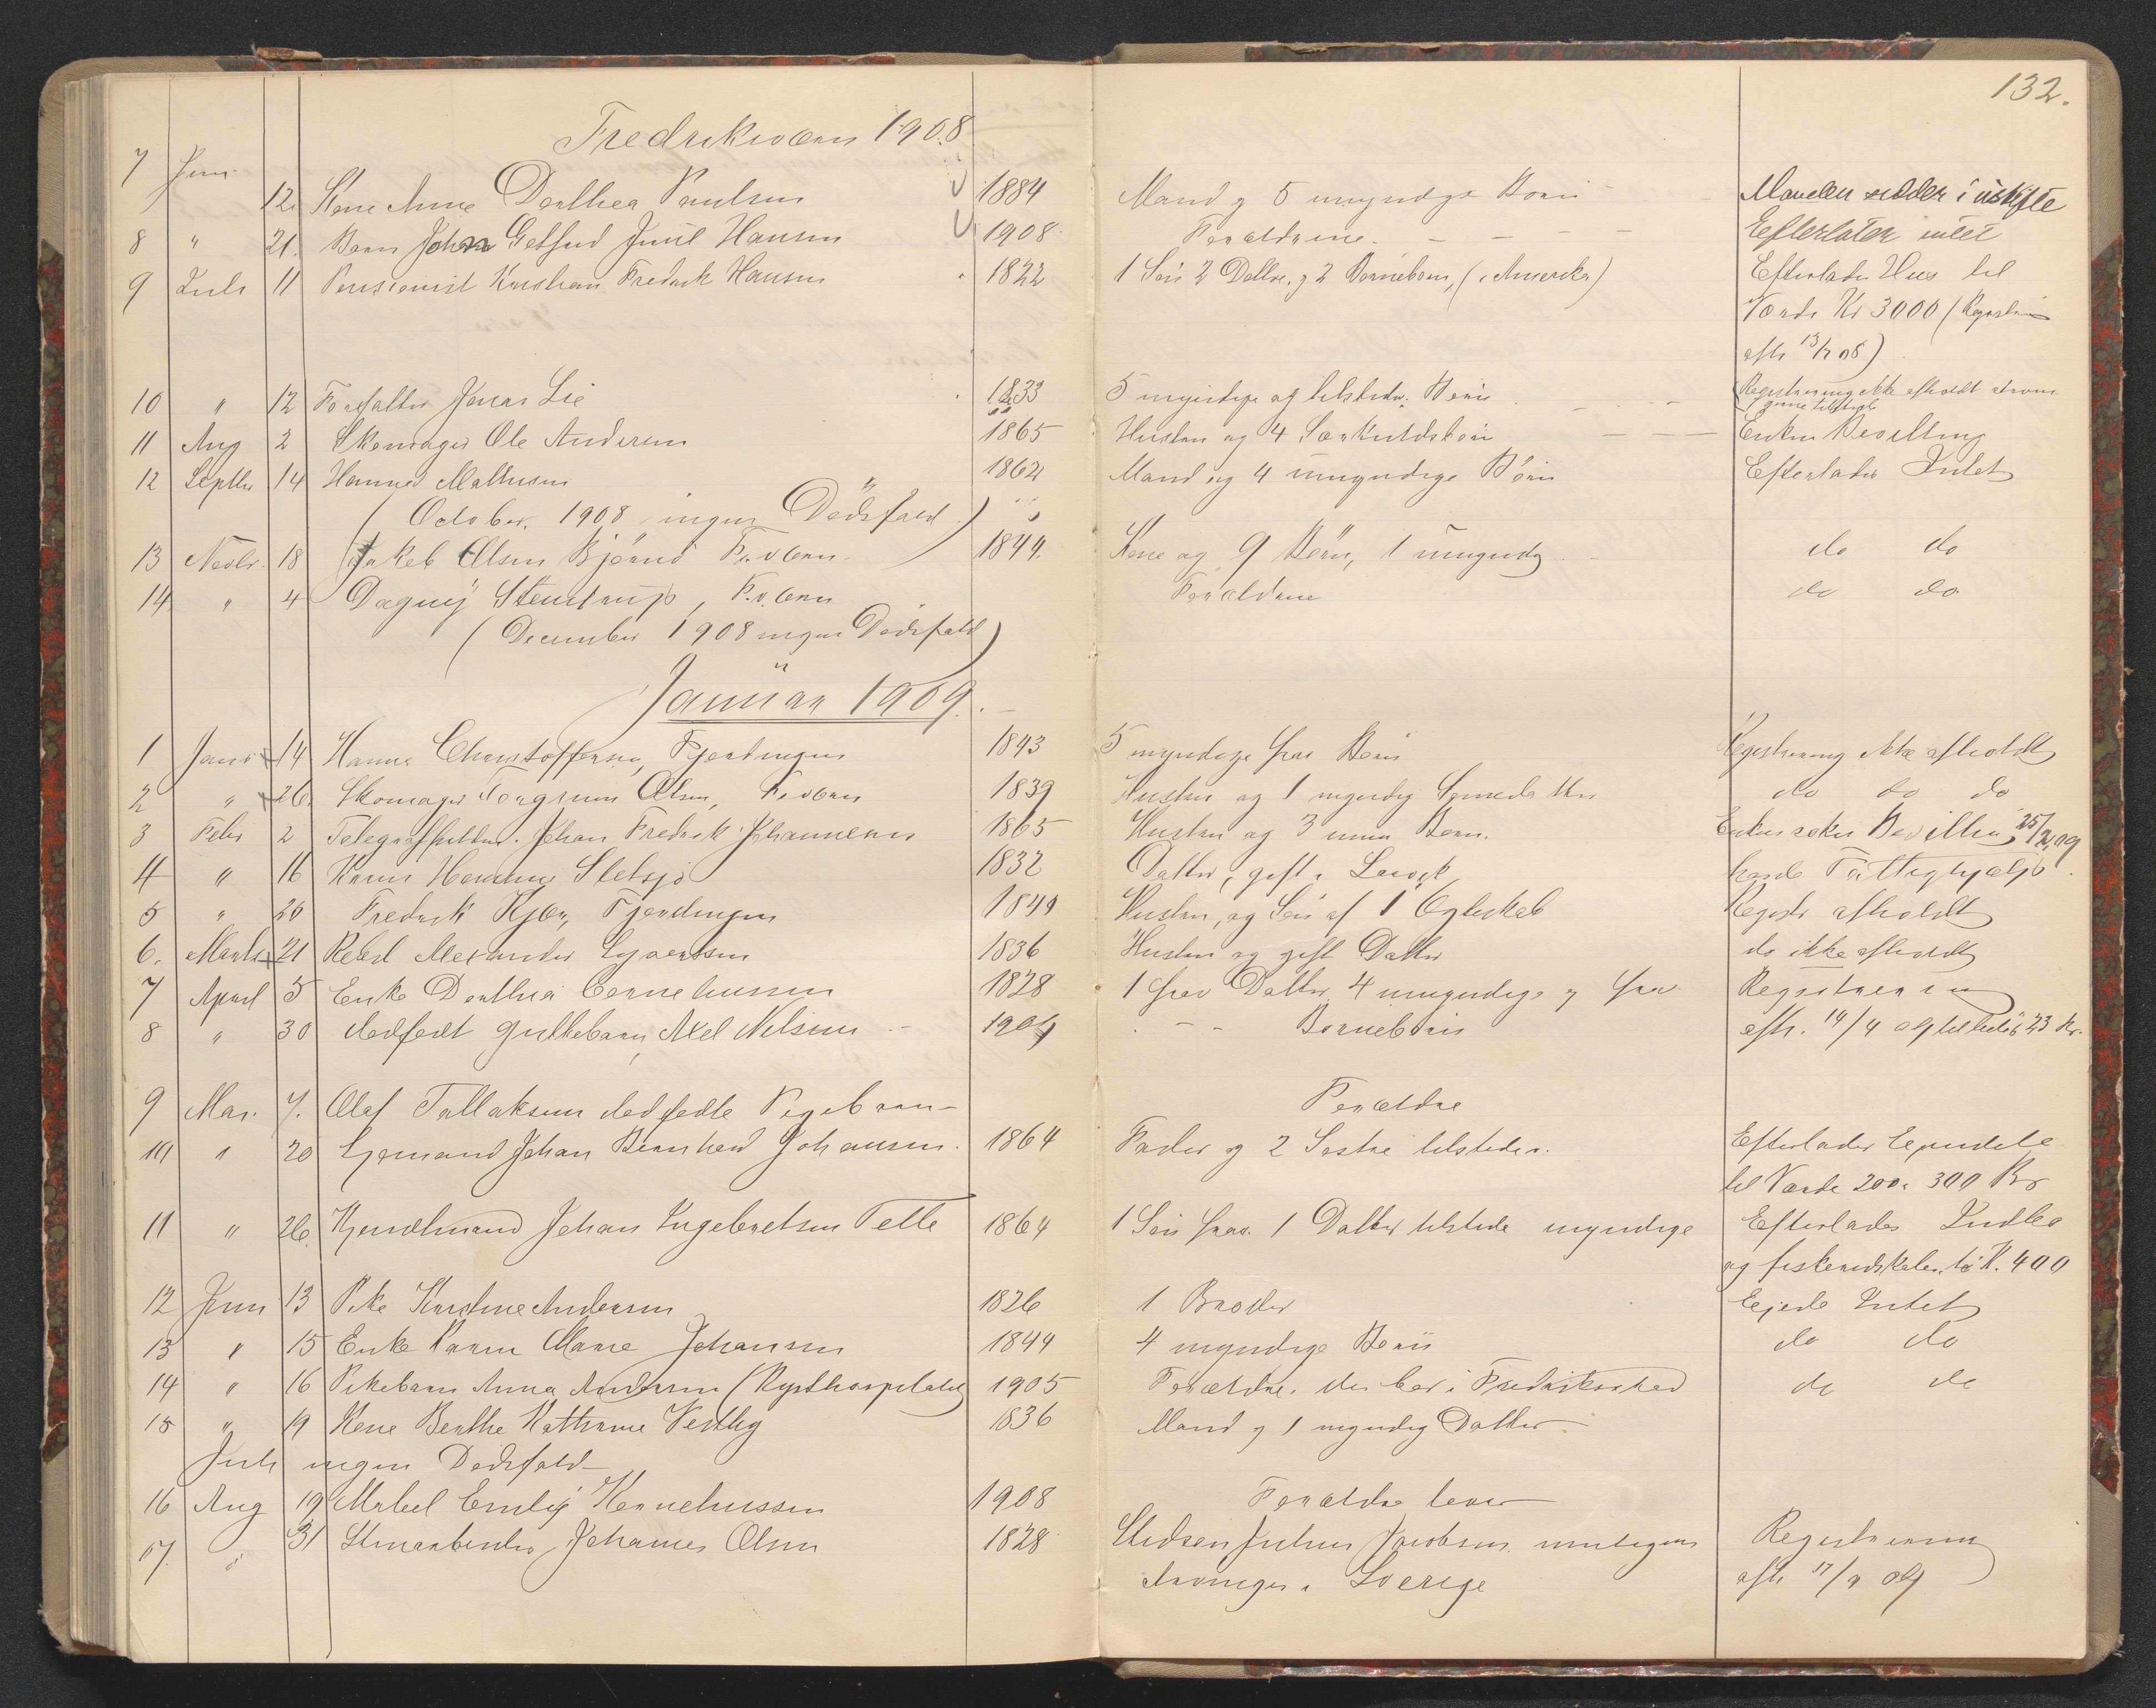 132.
Fredriksværn 1908
7 Juni 12. Kone Anne Dorthea Paulsen 1884 Mand og 5 umyndige Børn Manden sidder i uskifte
8 " 21. Barn John Gotfred Juul Hansen 1908 Forældrene. Efterlater intet
9 Juli 11 Pensionist Kristian Fredrik Hansen 1822 1 Søn 2 Døttre. og 2 Børnebørn, (i Amerika) Efterlader Hus til
Værdi Kr 3000 (Registrering
afh 13/7 08)
10 " 12 Forfatter Jonas Lie 1833 5 myndige og tilstedev. Børn Registrering ikke afholdt
11 Aug 2 Skomager Ole Andersen 1865 Hustru og 4 Særkuldsbørn Enken Bevilling
12 Septbr 14 Hanna Mathisen 1862 Mand og 4 umyndige Børn Efterlader Intet
(October. 1908 ingen Dødsfald)
13 Novbr. 18 Jakob Olsen Bjørnø Fr.værn 1844. Kone og 9 Børn, 1 umyndig do do
14 " 4 Dagny Stenstrup, F.værn Forældrene do do
(December 1908 ingen Dødsfald)
Januar 1909.
1 Janr 14 Hanna Christoffersen, Fjerdingen 1843 5 myndige frav Børn Registrering ikke afholdt
2 " 26. Skomager Torgrim Olsen, Fr.værn 1839 Hustru og 1 myndig do do do
3 Febr 2 Johan Fredrik Johannesen 1865 Hustru og 3 umyn Børn. Enken søker Bevilling 25/2 09
4 " 16 Karen Hansine Sletsjø 1832 Datter, gift i Larvik havde Fattighjælp.
5 " 20 Fredrik Kjær, Fjerdingen 1849 Hustru, og Søn af 1 Ægteskab Registr afholdt
6. Marts 21 Alexander Syvertsen 1836 Hustru og gift Datter do ikke afholdt
7 April 5 Enke Dorthea Corneliussen 1828 1 frav Datter 4 umyndige og frav Registrering
8 " 30 dødfødt Guttebarn, Axel Nilsen 1909 Børnebørn afh. 14/4 09 23 Kr.
9 Mai. 7. Olaf Tallaksens dødfødte Pigebarn Forældre
10 " 20 Sjømand Johan Bernhard Johansen. 1864 Fader og 2 Søstre tilstede. Efterlader Eiendele
til Værdi 200 a 300 Kr
11 " 26. Kjendtmand Johan Ingebretsen Telle 1864 1 Søn frav. 1 Datter tilstede myndige Efterlader Indbo
og fiskeredskaber til K. 400
12 Juni 13 Pike Karoline Andersen 1826 1 Broder Ejede Intet
13 " 15 Enke Karen Marie Johansen 1844 4 myndige Børn do do
14 " 16 Pikebarn Anna Andersen (Kysthospitalet 1905 Forældre. der bor i Fredriksstad do do
15 " 19 Kone Berthe Kathrine Vestby 1836 Mand og 1 myndig Datter
Juli ingen Dødsfald
16 Aug 19 Mabel Emily Korneliussen 1908 Forældre lever
17. " 31 Stenarbeider Johannes Olsen 1828 Stedsøn Julius Jacobsen Registrering
i Sverige afh 17/9 09